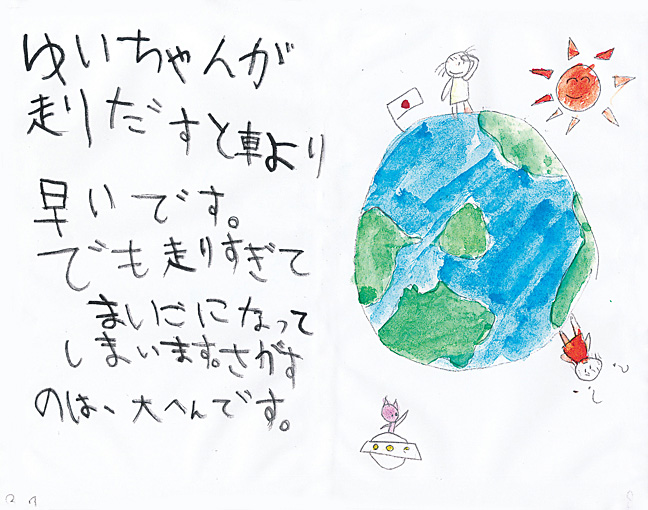 ゆいちゃんが
走りだすと車より
早いです。
でも走りすぎて
まいごになって
しまいます。さがす
のは、大へんです。